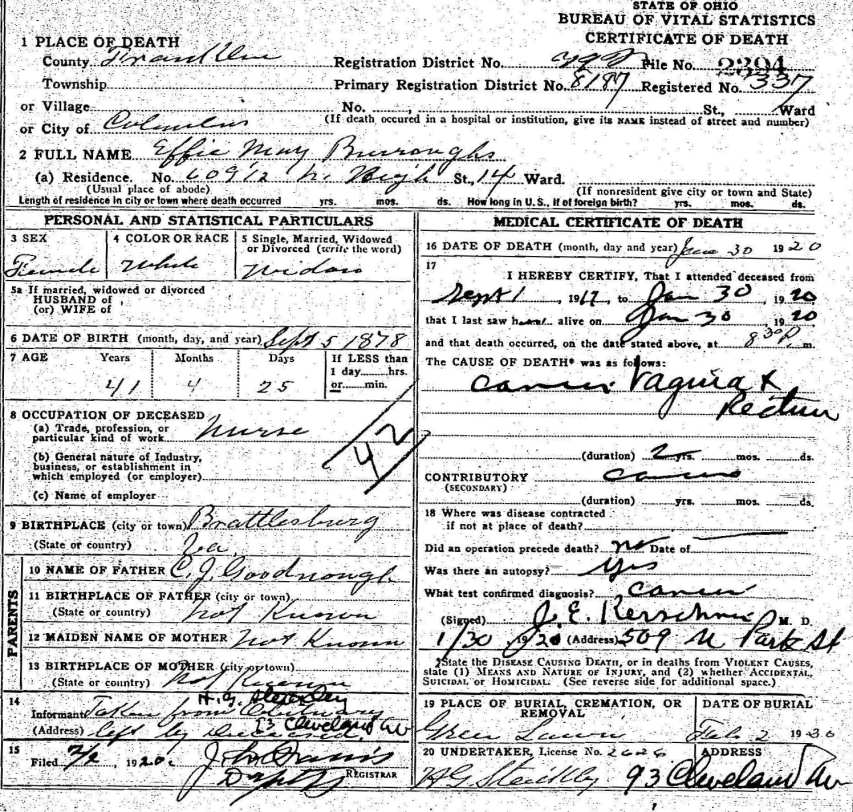 STATE OF OHIO
BUREAU OF VITAL STATISTICS
CERTIFICATE OF DEATH
1 PLACE OF DEATH
County Franklin Registration District No. File No. 2394
Township Primary Registration District No. 8187 Registered No. 337
or Village No. St., Ward
or City of Columbus (If death occured in a hospital or institution, give its NAME instead of street and number)
2 FULL NAME Effie May Burroughs
(a) Residence. No. 609 1/2 N. High St., 14 Ward.
(Usual place of abode) (If nonresident give city or town and State)
Length of residence in city or town where death occurred yrs. mos. ds. How long in U.S., if of foreign birth? yrs. mos. ds.
PERSONAL AND STATISTICAL PARTICULARS
3 SEX
Female
4 COLOR OR RACE
White
5 Single, Married, Widowed
or Divorced (write the word)
Widow
5a If married, widowed or divorced
HUSBAND of
(or) WIFE of
6 DATE OF BIRTH (month, day, and year) Sept 5 1878
7 AGE Years Months Days If LESS than
1 day hrs.
or min.
41 4 25
8 OCCUPATION OF DECEASED
(a) Trade, profession, or
particular kind of work Nurse
42
(b) General nature of Industry,
business, or establishment in
which employed (or employer)
(c) Name of employer
9 BIRTHPLACE (city or town) Brattlesburg
(State or country)
PARENTS
10 NAME OF FATHER C. J. Goodnough
11 BIRTHPLACE OF FATHER (city or town)
(State or country) Not Known
12 MAIDEN NAME OF MOTHER Not Known
13 BIRTHPLACE OF MOTHER (city or town)
(State or country) Not Known
14
Informant Taken from
(Address) left by Deceased 93 Cleveland Av
15
Filed 2/2, 1920
Dpty REGISTRAR
MEDICAL CERTIFICATE OF DEATH
16 DATE OF DEATH (month, day and year) Jan 30 1920
17
I HEREBY CERTIFY, That I attended deceased from
Sept 1, 1917, to Jan 30, 1920
that I last saw h alive on Jan 30 1920
and that death occurred, on the date stated above, at 8 30 P. m.
The CAUSE OF DEATH* was as follows:
cancer Vagina &
Rectum
(duration) 2 yrs. mos. ds.
CONTRIBUTORY
(SECONDARY)
(duration) yrs. mos. ds.
18 Where was disease contracted
if not at place of death?
Did an operation precede death? no Date of
Was there an autopsy? yes
What test confirmed diagnosis? cancer
(Signed) J. E. M. D.
1/30 1920 (Address) 509 N Park St
*State the DISEASE CAUSING DEATH, or in deaths from VIOLENT CAUSES,
state (1) MEANS AND NATURE OF INJURY, and (2) whether ACCIDENTAL,
SUICIDAL or HOMICIDAL. (See reverse side for additional space.)
19 PLACE OF BURIAL, CREMATION, OR
REMOVAL
Green Lawn
DATE OF BURIAL
Feb 2 1920
20 UNDERTAKER, License No. 2626
H G
ADDRESS
93 Cleveland Av